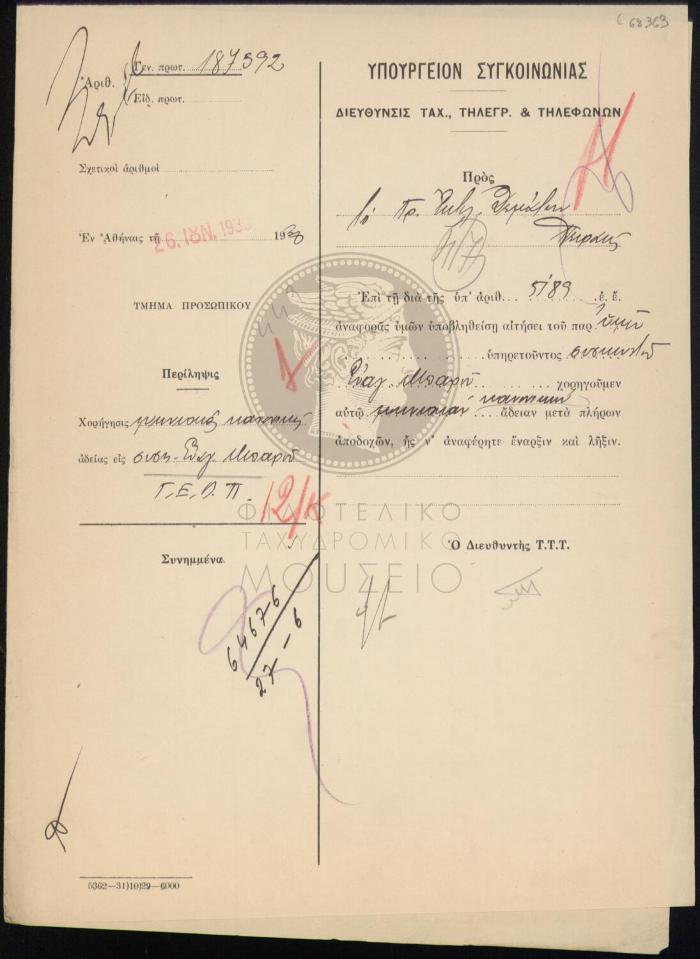 68363
Ἀριθ. Γεν. πρωτ. 187592
Εἰδ. πρωτ.
Σχετικοὶ ἀριθμοὶ
Ἐν Ἀθήναις τῇ 26. ΙΟΥΝ. 1930 193
ΤΜΗΜΑ ΠΡΟΣΩΠΙΚΟΥ
Περίληψις
Χορήγησις μηνιαίας κανονικῆς
ἀδείας εἰς
Γ.Ε.Ο.Π.
12/κ
Συνημμένα
64676
27-6
5362—31)10)29—6000
ΥΠΟΥΡΓΕΙΟΝ ΣΥΓΚΟΙΝΩΝΙΑΣ
ΔΙΕΥΘΥΝΣΙΣ ΤΑΧ., ΤΗΛΕΓΡ. & ΤΗΛΕΦΩΝΩΝ
Πρὸς
Ἐπὶ τῇ διὰ τῆς ὑπ' ἀριθ. 5189 ἐ. ἔ.
ἀναφορᾶς ὑμῶν ὑποβληθείσῃ αἰτήσει τοῦ παρ' ὑμῖν
ὑπηρετοῦντος
Εὐαγ. χορηγοῦμεν
αὐτῷ μηνιαίαν κανονικὴν ἄδειαν μετὰ πλήρων
ἀποδοχῶν, ἧς ν' ἀναφέρητε ἔναρξιν καὶ λῆξιν.
Ὁ Διευθυντὴς Τ.Τ.Τ.
ΦΙΛΟΤΕΛΙΚΟ
ΤΑΧΥΔΡΟΜΙΚΟ
ΜΟΥΣΕΙΟ